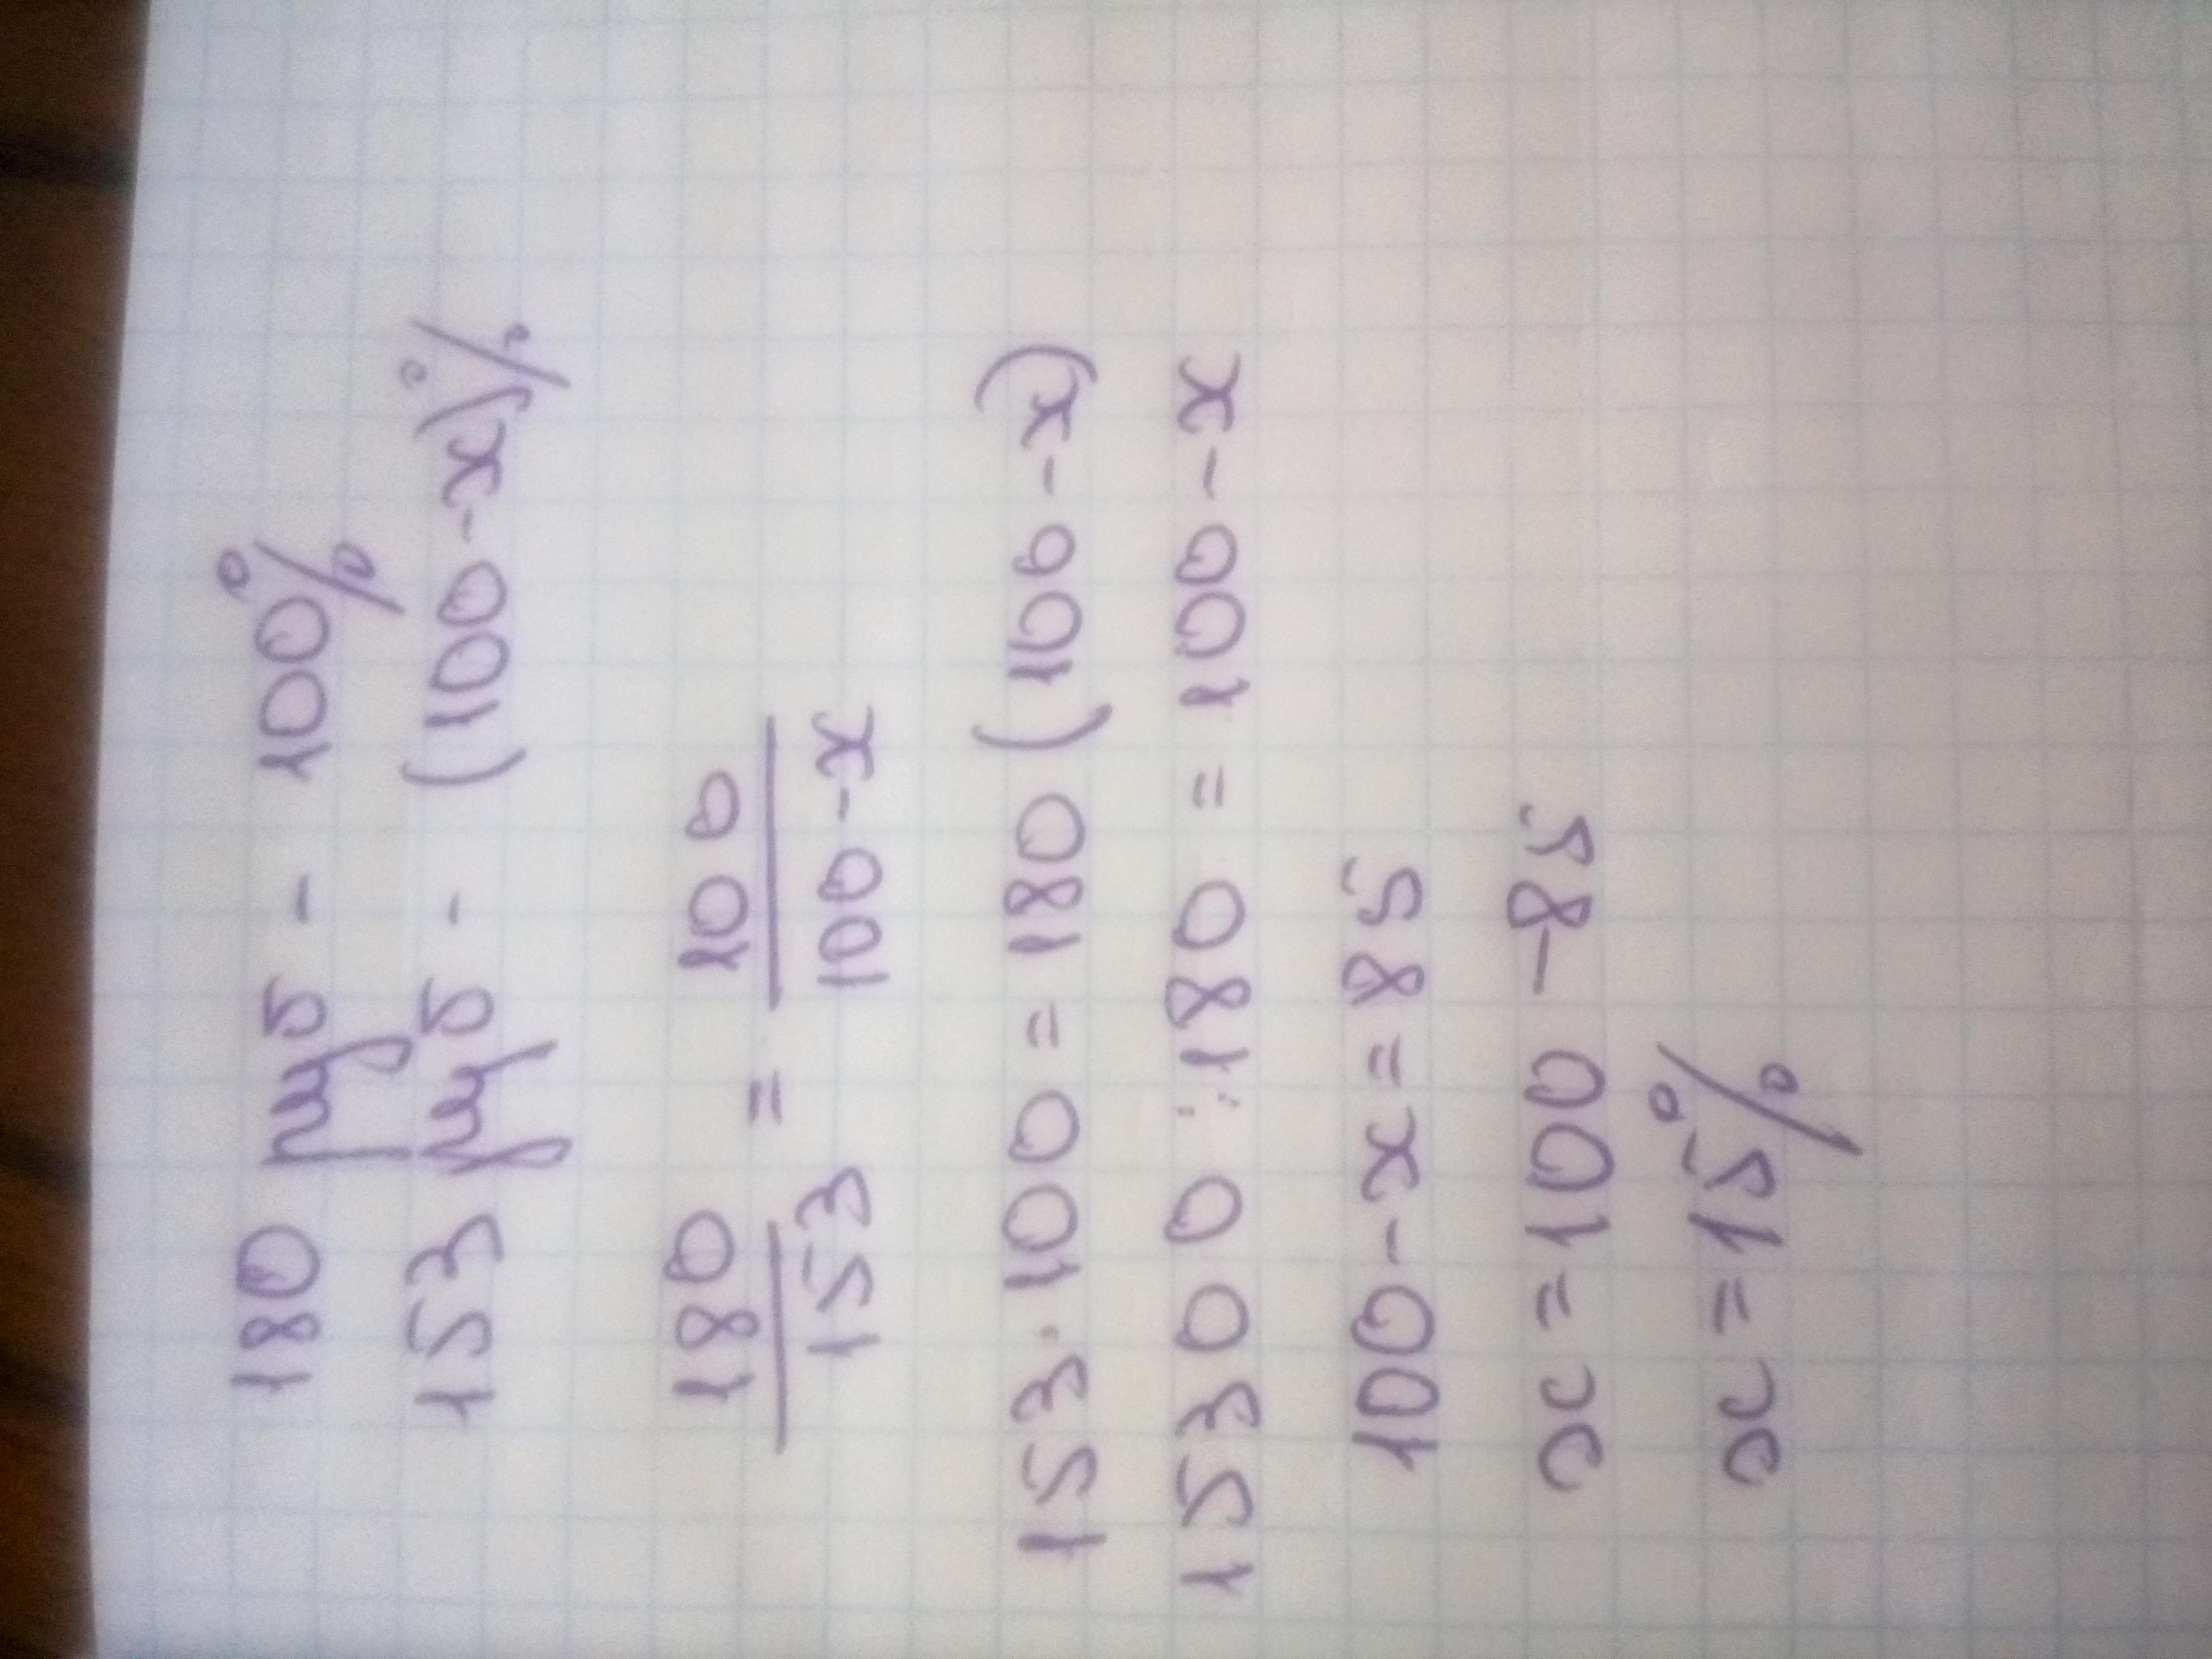 180 руб - 100%
153 руб - (100-x)%
180/153 = 100/100-x
153·100 = 180(100-x)
15300:180 = 100-x
100-x=85
x=100-85
x=15%